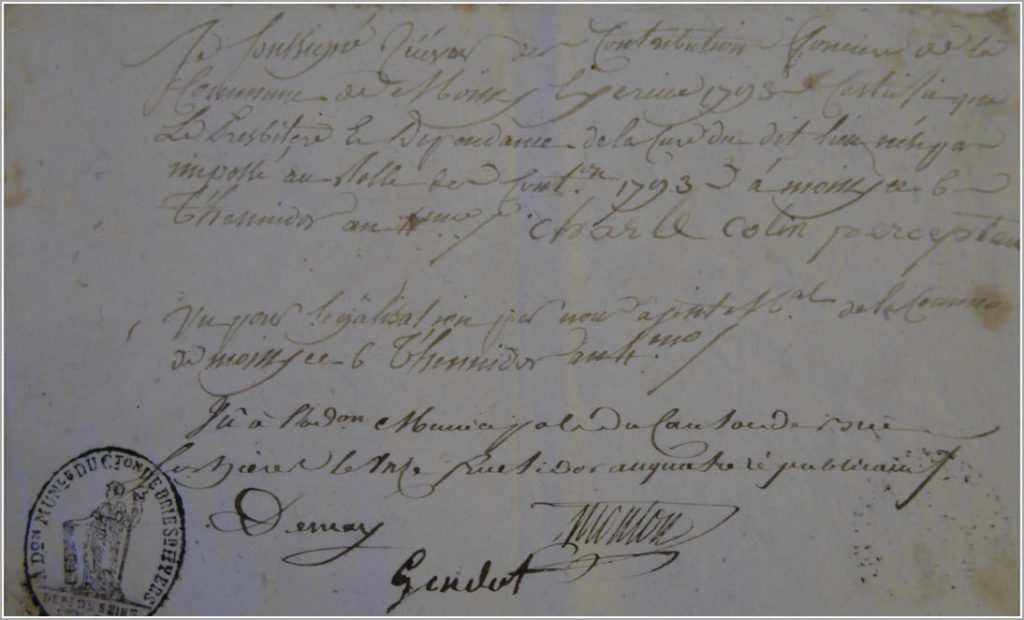 Je soussigné Récévr des Contribution foncière de la
Commune de Moissy L'exercice 1793 Certifie que
Le Presbitère Et Dépendance de la Cure du dit lieu nést par
imposé au Rolle des Cont.on 1793 à moissy ce 6
Thermidor an 4.eme charle Colin percepteur
Vu pour légalisation par nous ajoint M.al de la Commune
de moissy ce 6 Thermidor an 4.eme
Vû à l'adon Municipale du Canton de Brie
le fructidor an quatre républicain
Demay
Gendret
ADon MUNle DU CTon DE BRIE SR HYERES
DEPt DE SEINE